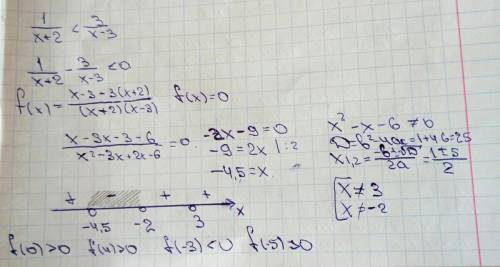 1/(x+2) < 3/(x-3)
1/(x+2) - 3/(x-3) < 0
f(x) = (x-3-3(x+2))/((x+2)(x-3)) f(x)=0
(x-3x-3-6)/(x²-3x+2x-6) = 0
-2x-9=0
-9=2x |:2
-4,5=x
x²-x-6≠0
D=b²-4ac=1+4·6=25
x1,2=(-b±√D)/2a=(1±5)/2
[x≠3
x≠-2
+ - + +
-4,5 -2 3 x
f(0)>0 f(4)>0 f(-3)<0 f(-5)>0